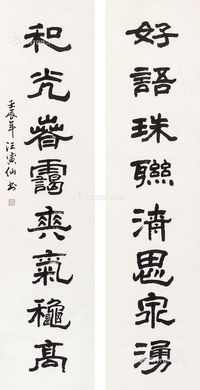 好語珠聯清思泉湧
和光萅靄爽氣穐高
壬辰年汪寅仙书